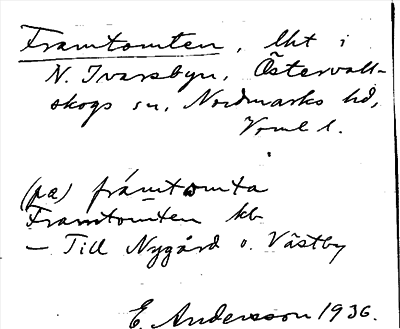 Framtomten, lht i
N. Ivarsbyn, Östervall-
skogs sn, Nordmarks hd,
Vrml l.
(pa) framtomta
Framtomten kb
— Till Nygård o. Västby
E. Andersson 1936.